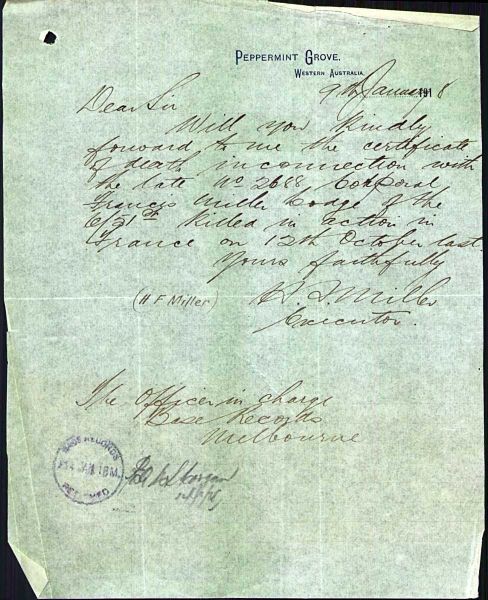 PEPPERMINT GROVE.
WESTERN AUSTRALIA.
9th January 1918
Dear Sir
Will you kindly
forward to me the certificate
of death in connection with
the late No 2688, Corporal
Francis Miller Lodge of the
6/51st killed in action in
France on 12th October last.
Yours faithfully
(H F Miller) H. F. Miller
Executor.
The Officer in charge
Base Records
Melbourne
BASE RECORDS
RECEIVED